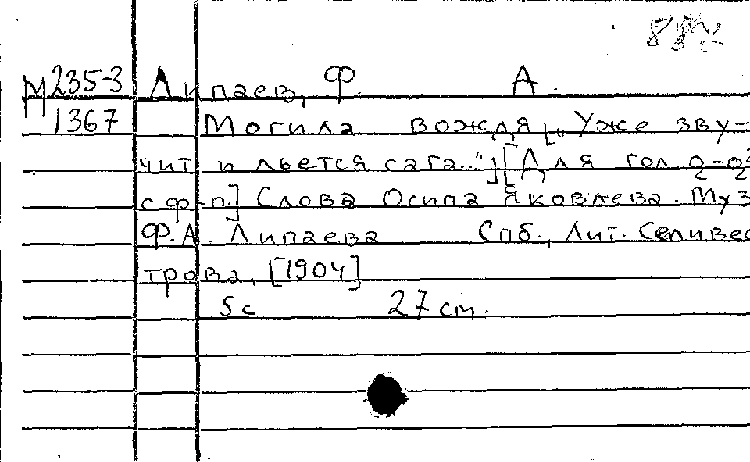 М 235-3 Липаев, Ф. А.
1367 Могила вождя [„Уже зву-
чит и льется сага..."] [Для гол. g-g²
с ф-п.] Слова Осипа Яковлева. Муз.
Ф.А. Липаева Спб., Лит. Селивес
трова, [1904]
5 с 27 см.